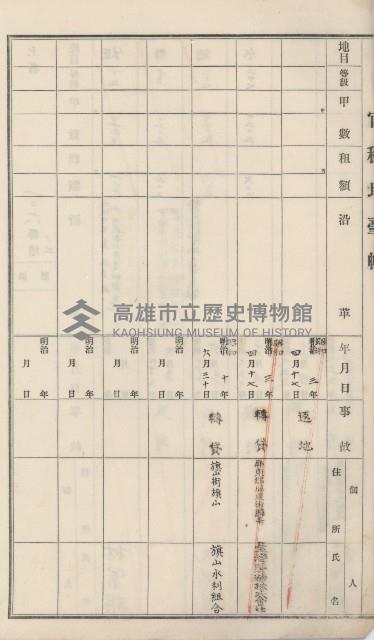 官租地臺帳
地目 等級 甲數 租額 沿革 年月日 事故 住所 氏名 個人
昭和 明治 三年 四月十七日 返地
昭和 明治 三年 四月十七日 轉貸
昭和 明治 十年 六月三十日 轉貸 旗山街旗山 旗山水利組合
明治 年 月 日
明治 年 月 日
明治 年 月 日
明治 年 月 日
高雄市立歷史博物館
KAOHSIUNG MUSEUM OF HISTORY